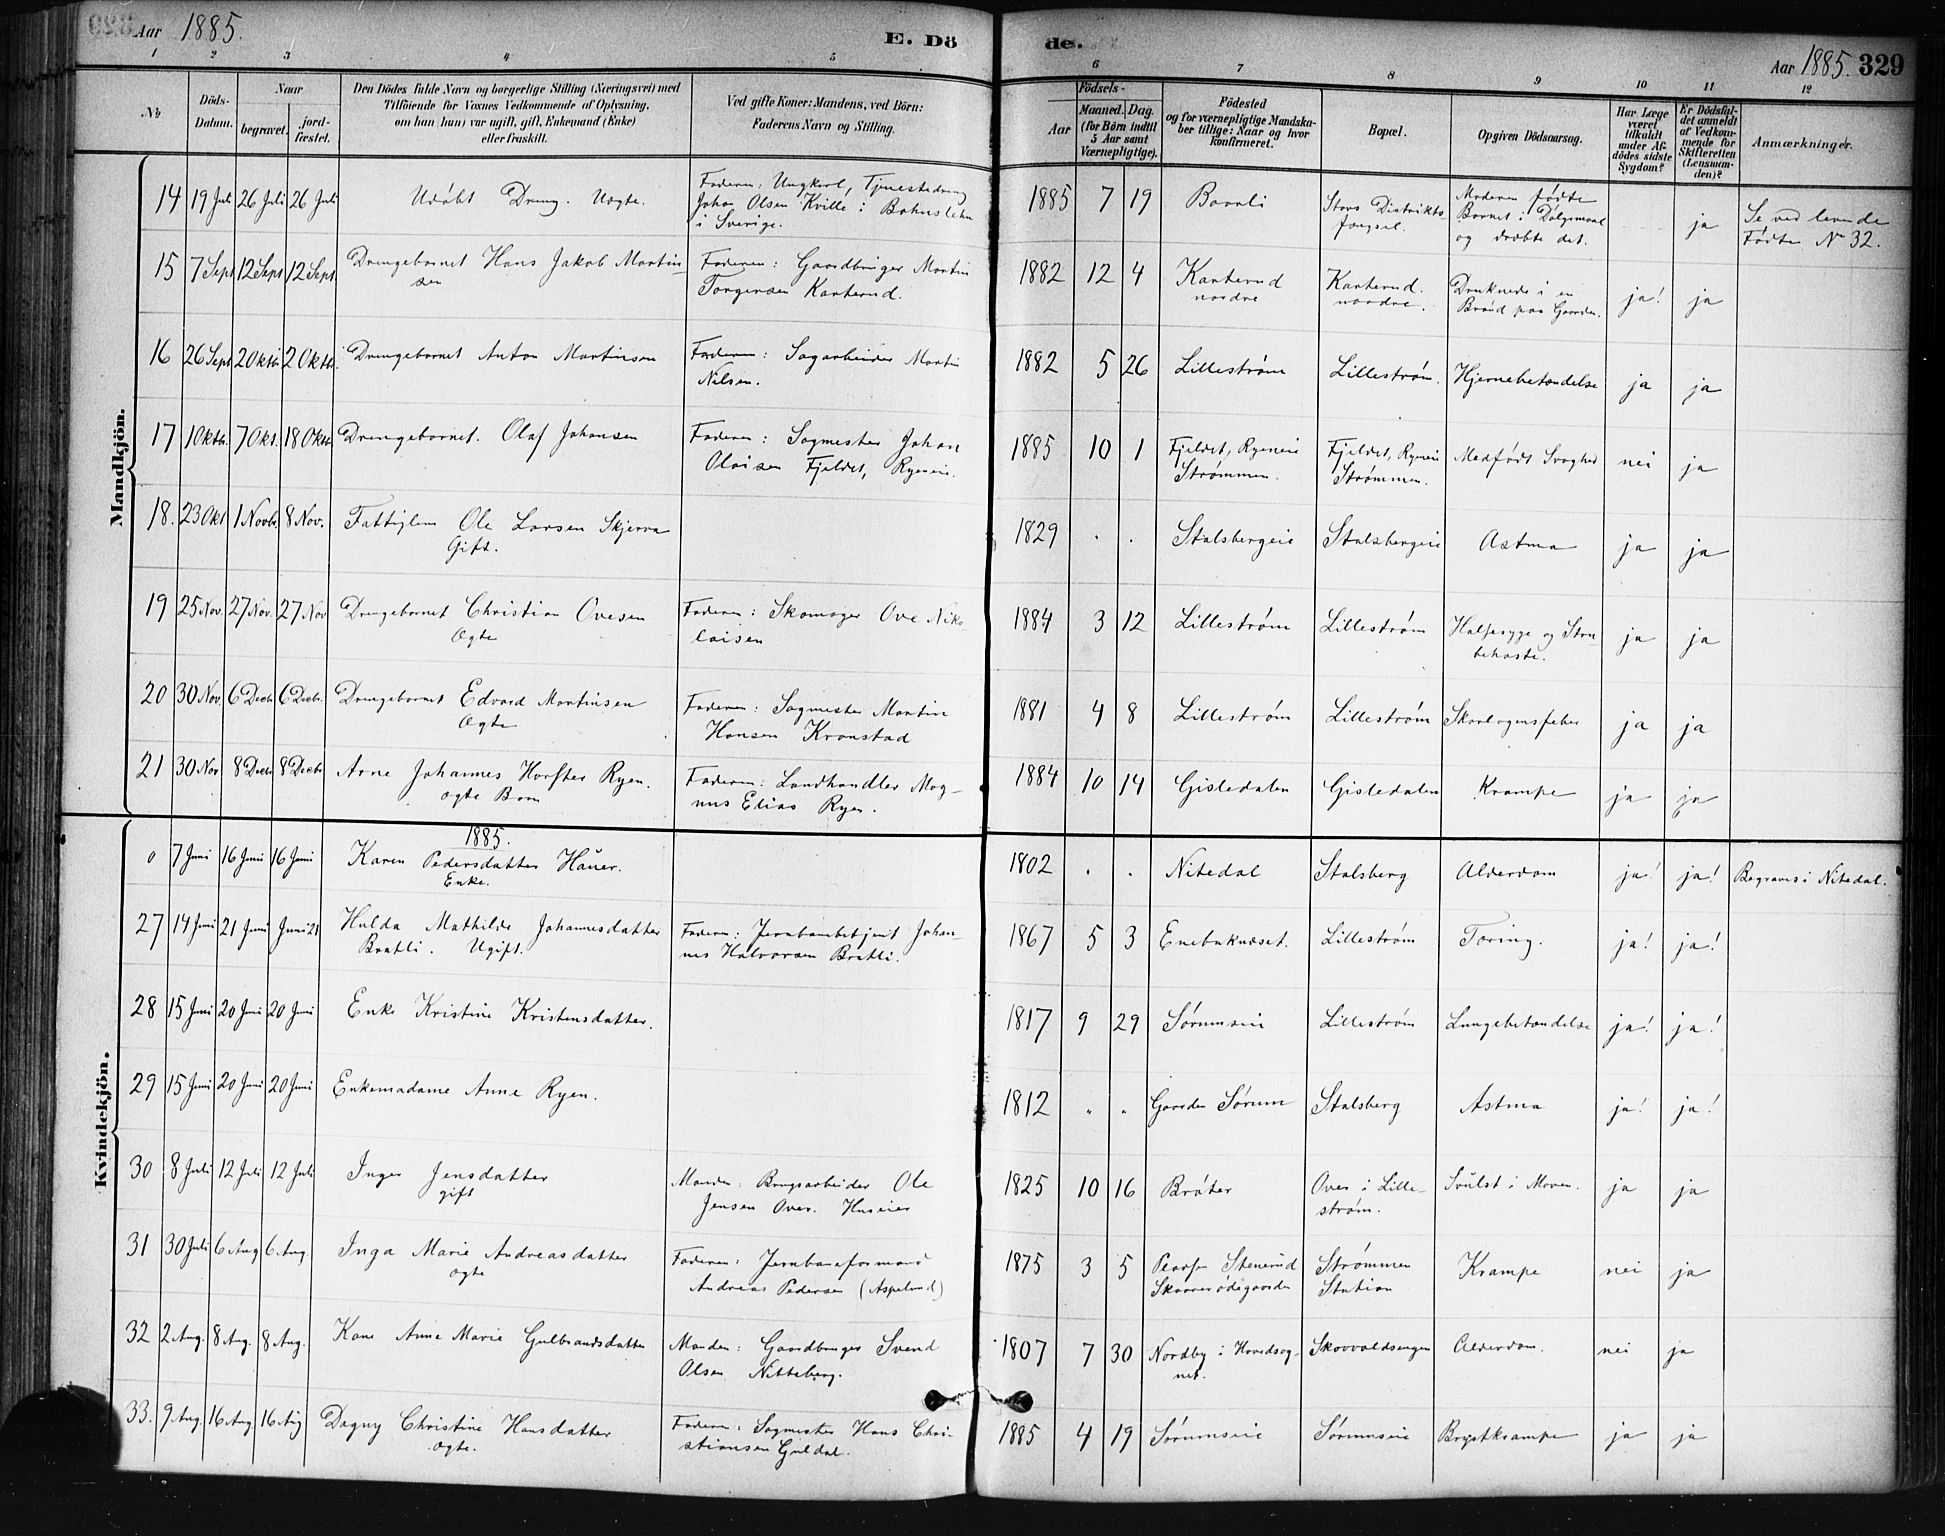 Aar 1885.
E. Dö
de.
Aar 1885. 329
1 2 3 4 5 6 7 8 9 10 11 12
No
Döds-Datum.
Naar
begravet.
jordfæstet.
Den Dödes fulde Navn og borgerlige Stilling (Næringsvei) med
Tilföiende for Voxnes Vedkommende af Oplysning,
om han (hun) var ugift, gift, Enkemand (Enke)
eller fraskilt.
Ved gifte Koner: Mandens, ved Börn:
Faderens Navn og Stilling.
Födsels-
Aar
Maaned. Dag.
(for Börn indtil
5 Aar samt
Værnepligtige).
Födested
og for værnepligtige Mandskaber tillige: Naar og hvor
konfirmeret.
Bopæl.
Opgiven Dödsaarsag.
Har Læge
været
tilkaldt
under Afdödes sidste
Sygdom?
Er Dödsfaldet anmeldt
af Vedkommende for
Skifteretten
(Lensmanden)?
Anmærkninger.
Mandkjön.
14 19 Juli 26 Juli 26 Juli Udøbt Dreng. Uægte. Faderen: Ungkarl, Tjenestedreng
Johan Olsen Kville i Bohuslehn
i Sverige.
1885 7 19 Baarli Stavs Distrikts
fængsel. Moderen fødte
Barnet i Dølgsmaal
og dræbte det. ja Se ved levende
Fødte No 32.
15 7 Sept 12 Sept 12 Sept. Drengebarnet Hans Jakob Martinsen
Faderen: Gaardbruger Martin
Torgersen Kanterud.
1882 12 4 Kanterud
nordre Kanterud
nordre. Druknede i en
Brønd paa Gaarden. ja! ja
16 26 Sept 2 Oktbr 2 Oktbr. Drengebarnet Anton Martinsen Faderen: Sagarbeider Martin
Nilsen.
1882 5 26 Lillestrøm Lillestrøm. Hjernebetændelse ja ja
17 1 Oktbr. 7 Okt. 18 Oktbr Drengebarnet. Olaf Johansen Faderen: Sagmester Johan
Olaisen Fjeldet, Ryeneie.
1885 10 1 Fjeldet, Ryeneie
Strømmen. Fjeldet, Ryeneie
Strømmen. Medfødt Svaghed nei ja
18. 23 Okt 1 Novbr. 8 Nov. Fattiglem Ole Larsen Skjerva
Gift.
1829 . . Stalsbergeie Stalsbergeie Astma ja ja
19 25 Nov. 27 Nov. 27 Nov Drengebarnet Christian Ovesen
Ægte Faderen: Skomager Ove Nikolaisen
1884 3 12 Lillestrøm Lillestrøm Halsesyge og Strubehoste. ja ja
20 30 Nov 6 Decbr 6 Decbr. Drengebarnet Edvard Martinsen
Ægte Faderen: Sagmester Martin
Hansen Kronstad
1881 4 8 Lillestrøm Lillestrøm Skarlagensfeber ja ja
21 30 Nov 8 Decbr 8 Decbr. Arne Johannes Ryen.
ægte Barn Faderen: Landhandler Magnus Elias Ryen.
1884 10 14 Gisledalen Gisledalen Krampe ja ja
Kvindekjön.
1885.
7 Juni 16 Juni 16 Juni Karen Pedersdatter Hauer.
Enke.
1802 . . Nitedal Stalsberg Alderdom ja! ja! Begraves i Nitedal.
27 14 Juni 21 Juni Juni 21 Hulda Mathilde Johannesdatter
Bratli. Ugift. Faderen: Jernbanebetjent Johannes Halvorsen Bratli.
1867 5 3 Enebaknæset. Lillestrøm Tæring. ja! ja!
28 15 Juni 20 Juni 20 Juni Enke Kristine Kristensdatter.
1817 9 29 Sørumseie Lillestrøm Lungebetændelse ja! ja!
29 15 Juni 20 Juni 20 Juni Enkemadame Anne Ryen.
1812 " " Gaarden Sørum Stalsberg Astma ja! ja!
30 8 Juli 12 Juli 12 Juli Inger Jensdatter
gift Manden: Brugsarbeider Ole
Jensen Over. Huseier
1825 10 16 Bråter Over i Lillestrøm. Svulst i Maven. ja ja
31 30 Juli 6 Aug 6 Aug. Inga Marie Andreasdatter
ægte Faderen: Jernbaneformand
Andreas Pedersen (Aspelund)
1875 3 5 Stenerud
Skaarerødegaarden Strømmen
Station Krampe nei ja
32 2 Aug. 8 Aug. 8 Aug. Kone Anne Marie Gulbrandsdatter Manden: Gaardbruger Svend
Olsen Nitteberg.
1807 7 30 Nordby i Hovedsognet. Skovvoldsengen Alderdom. nei ja
33. 9 Aug. 16 Aug 16 Aug Dagny Christine Hansdatter
ægte. Faderen: Sagmester Hans Christiansen Guldal.
1885 4 19 Sørumseie Sørumseie Brystkrampe ja ja